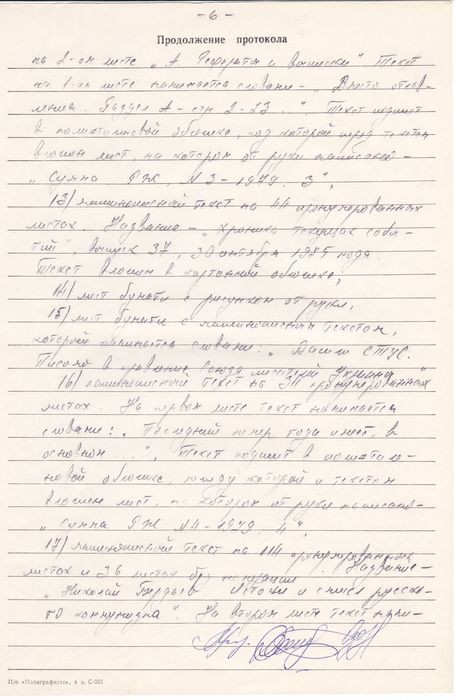 - 6 -
Продолжение протокола
на 2-ом листе „А Рефераты и выписки" Текст
на 1-ом листе начинается словами - „Вместо оглав-
ления. Раздел А - стр 2-23..." Текст подшит
в полиэтиленовой обложке, под которой перед текстом
вложен лист, на котором от руки написано -
„Сумма РЖ, N3 - 1979. 3",
13/ машинописный текст на 44 пронумерованных
листах. Название - „Хроника текущих собы-
тий", выпуск 37, 30 октября 1975 года.
Текст вложен в картонную обложку,
14/ лист бумаги с рисунком от руки,
15/ лист бумаги с машинописным текстом,
который начинается словами: „ СТУС.
Письмо в правление Союза писателей Украины"
16/ машинописный текст на пронумерованных
листах. На первом листе текст начинается
словами: „Последний номер года имеет в
основном ...", Текст подшит в полиэтиле-
новой обложке, между которой и текстом
вложен лист, на котором от руки написано -
„Сумма РЖ N4 - 1979. 4",
17/ машинописный текст на 114 пронумерованных
листах и 36 листах без нумерации. Название -
„Николай Бердяев Истоки и смысл русско-
го коммунизма". На втором листе текст начи-
П/о «Полиграфист», 4 з. С-333